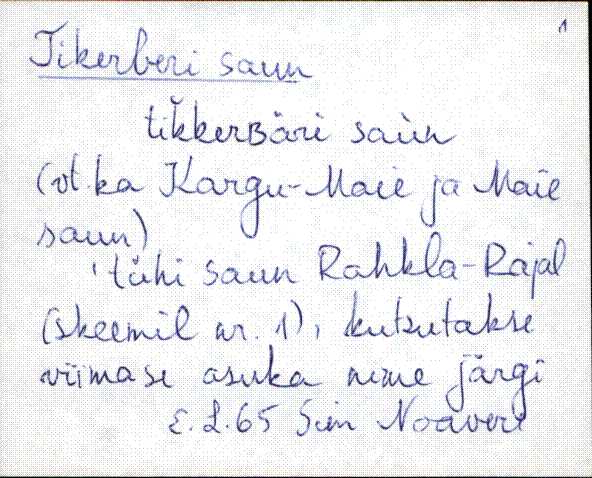 1
Tikerberi saun
tik̆kerʙäri saùn
(vt. ka Kargu-Maie ja Maie
saun)
'tühi saun Rahkla-Rajal
(skeemil nr. 1), kutsutakse
viimase asuka nime järgi
E. L. 65 Sim Noaveri